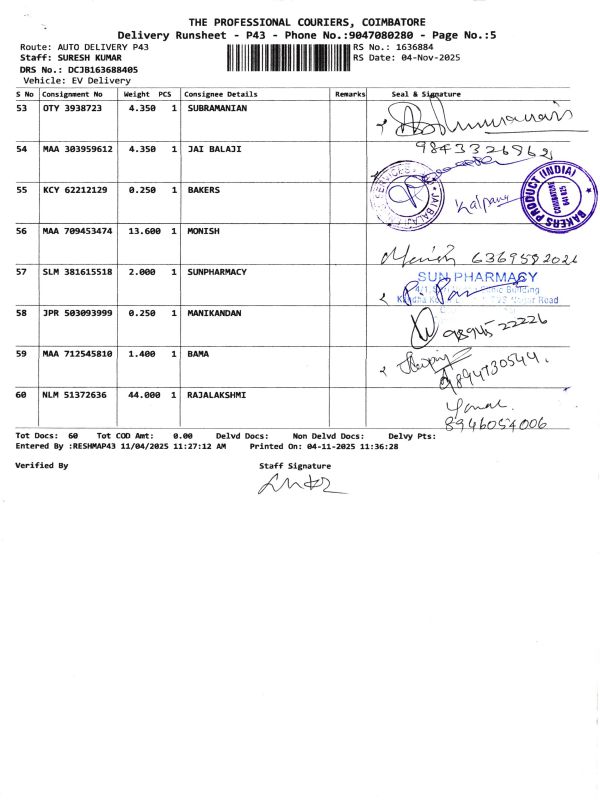 THE PROFESSIONAL COURIERS, COIMBATORE
Delivery Runsheet - P43 - Phone No.:9047080280 - Page No.:5
Route: AUTO DELIVERY P43
RS No.: 1636884
Staff: SURESH KUMAR
RS Date: 04-Nov-2025
DRS No.: DCJB163688405
Vehicle: EV Delivery
S No Consignment No Weight PCS Consignee Details Remarks Seal & Signature
53 OTY 3938723 4.350 1 SUBRAMANIAN
54 MAA 303959612 4.350 1 JAI BALAJI
9843326962
55 KCY 62212129 0.250 1 BAKERS
SERVICES JAI BALAJI
Kalpana
BAKERS PRODUCT (INDIA)
COIMBATORE
641 025
56 MAA 709453474 13.600 1 MONISH
Monish 6369582021
57 SLM 381615518 2.000 1 SUNPHARMACY
SUN PHARMACY
Building
Nagar Road
58 JPR 503093999 0.250 1 MANIKANDAN
98945 22226
59 MAA 712545810 1.400 1 BAMA
9894730544.
60 NLM 51372636 44.000 1 RAJALAKSHMI
8946054006
Tot Docs: 60 Tot COD Amt: 0.00 Delvd Docs: Non Delvd Docs: Delvy Pts:
Entered By :RESHMAP43 11/04/2025 11:27:12 AM Printed On: 04-11-2025 11:36:28
Verified By Staff Signature